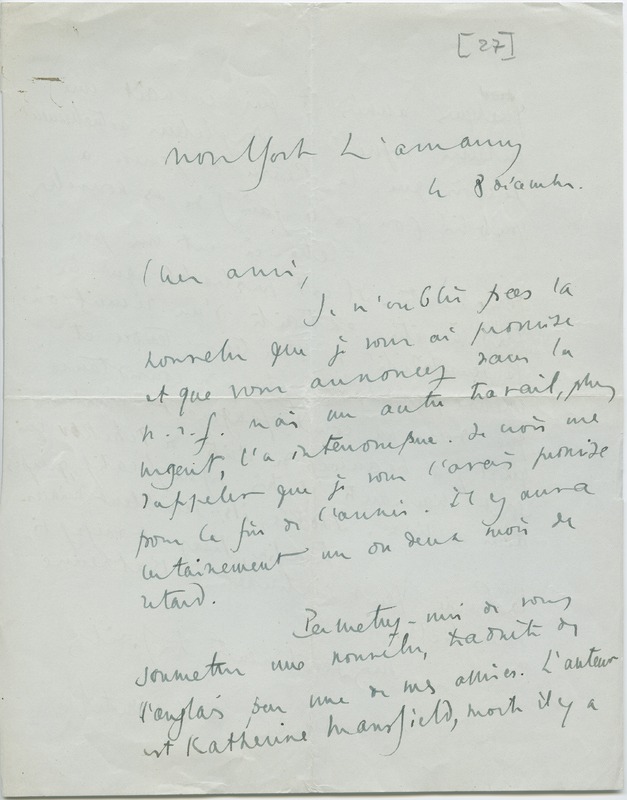 [27]
Montfort L'amaury
le 8 décembre.
Cher ami,
Je n'oublie pas la
nouvelle que je vous ai promise
et que vous annoncez dans la
n.r.f. mais un autre travail, plus
urgent, l'a interrompue. Je crois me
rappeler que je vous l'avais promise
pour la fin de l'année. Il y aura
certainement un ou deux mois de
retard.
Permettez-moi de vous
soumettre une nouvelle, traduite de
l'anglais par une de mes amies. L'auteur
est Katherine Mansfield, morte il y a